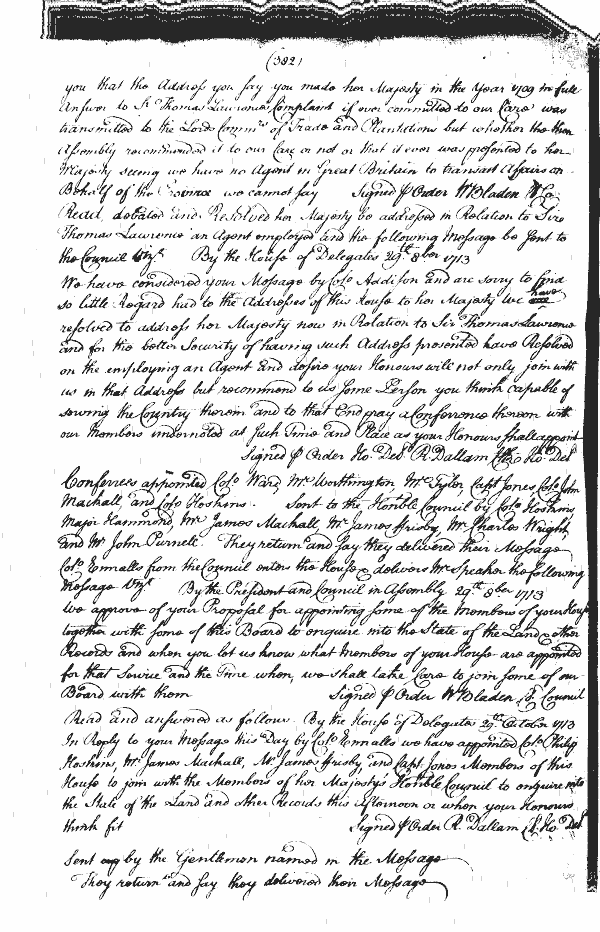 (382)
you that the Address you say you made her Majesty in the Year 1709 in full
Answer to Sr. Thomas Lawrences Complaint if ever committed to our Care was
transmitted to the Lords Commrs. of Trade and Plantations but whether the then
Assembly recommended it to our Care or not or that it ever was presented to her
Majesty seeing we have no Agent in Great Britain to transact Affairs on
Behalf of the Province we cannot say Signed p Order W Bladen Cl. Co.
Read, debated and Resolved her Majesty be addressed in Relation to Sir
Thomas Lawrence an Agent employed and the following Message be sent to
the Council Vizt. By the House of Delegates 29th. 8ber 1713
We have considered your Message by Colo. Addison and are sorry to find
so little Regard had to the Addresses of this House to her Majesty we have
resolved to address her Majesty now in Relation to Sir Thomas Lawrence
and for the better Security of having such Address presented have Resolved
on the employing an Agent and desire your Honours will not only join with
us in that Address but recommend to us some Person you think capable of
serving the Country therein and to that End pray a Conferrence thereon with
our Members indornoted at such Time and Place as your Honours shall appoint
Signed p Order Ho. Dels. R. Dallam Cl. Ho. Del.
Conferrees appointed Colo. Ward, Mr. Worthington, Mr. Tyler, Capt. Jones, Colo. John
Mackall, and Colo. Hoskins. Sent to the Honble. Council by Colo. Hoskins,
Major Hammond, Mr. James Mackall, Mr. James Frisby, Mr. Charles Wright,
and Mr. John Purnell. They return and say they delivered their Message
Colo. Ennalls from the Council enters the House & delivers Mr. Speaker the following
Message Vizt. By the President and Council in Assembly 29th. 8ber 1713
We approve of your Proposal for appointing some of the Members of your House
together with some of this Board to enquire into the State of the Land & other
Records and when you let us know what Members of your House are appointed
for that Service and the Time when, we shall take Care to join some of our
Board with them Signed p Order W Bladen Cl. Council
Read and answered as follows. By the House of Delegates 29th. October 1713
In Reply to your Message this Day by Colo. Ennalls we have appointed Colo. Philip
Hoskins, Mr. James Mackall, Mr. James Frisby, and Capt. Jones Members of this
House to join with the Members of her Majesty's Honble. Council to enquire into
the State of the Land and other Records this Afternoon or when your Honours
think fit Signed p Order R. Dallam Cl. Ho. Del.
Sent up by the Gentlemen named in the Message
They return and say they delivered their Message